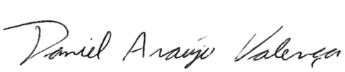 Daniel Araújo Valença